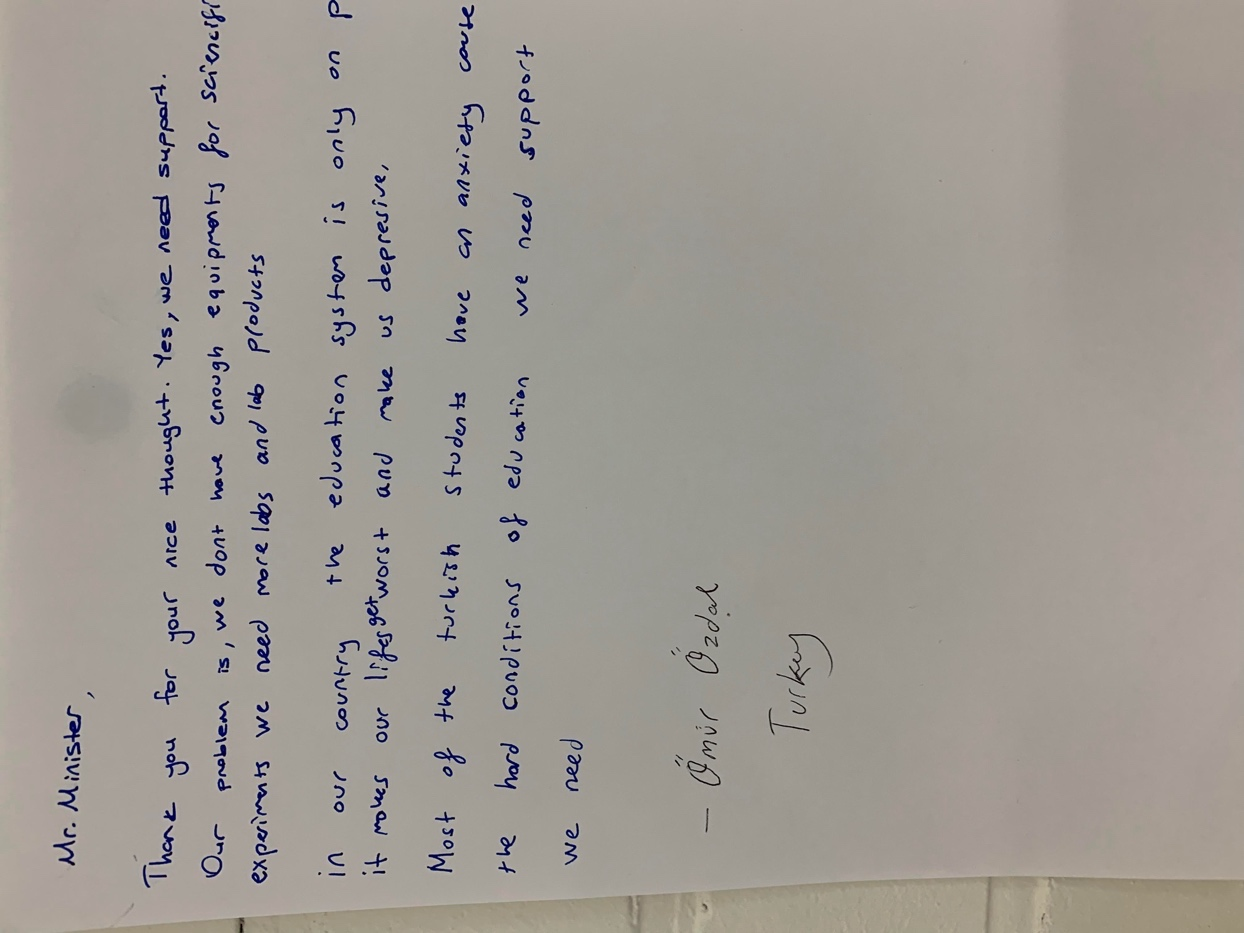 Mr. Minister,
Thank you for your nice thought. Yes, we need support.
Our problem is, we dont have enough equipments for
experiments we need more labs and lab products
in our country the education system is only on
it makes our lifes get worst and make us depresive,
Most of the turkish students have an anxiety cause
the hard conditions of education we need support
we need
— Ömür Özdal
Turkey